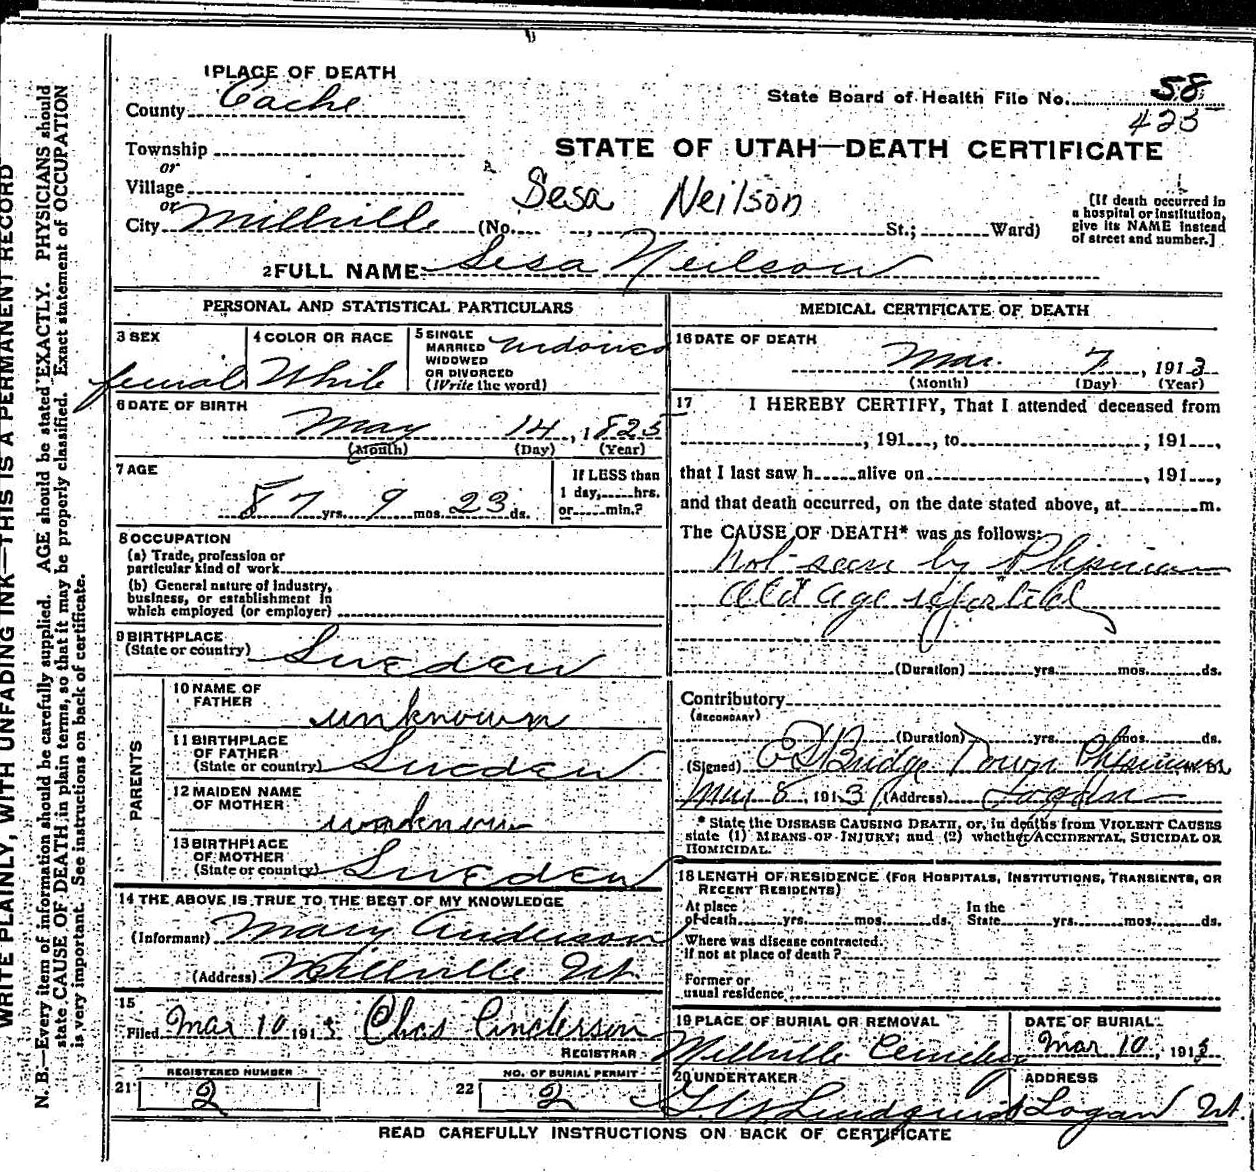 1 PLACE OF DEATH
County Cache
State Board of Health File No. 58
423
Township
or
Village
or
City Millville (No. , St.; Ward)
STATE OF UTAH—DEATH CERTIFICATE
Sesa Neilson
[If death occurred in
a hospital or institution,
give its NAME instead
of street and number.]
2 FULL NAME Sesa Neilson
PERSONAL AND STATISTICAL PARTICULARS
3 SEX
female
4 COLOR OR RACE
White
5 SINGLE
MARRIED
WIDOWED
OR DIVORCED
(Write the word)
Widowed
6 DATE OF BIRTH
May 14, 1825
(Month) (Day) (Year)
7 AGE
87 yrs. 9 mos. 23 ds.
If LESS than
1 day, hrs.
or min.?
8 OCCUPATION
(a) Trade, profession or
particular kind of work
(b) General nature of industry,
business, or establishment in
which employed (or employer)
9 BIRTHPLACE
(State or country) Sweden
PARENTS
10 NAME OF
FATHER
unknown
11 BIRTHPLACE
OF FATHER
(State or country) Sweden
12 MAIDEN NAME
OF MOTHER
unknown
13 BIRTHPLACE
OF MOTHER
(State or country) Sweden
14 THE ABOVE IS TRUE TO THE BEST OF MY KNOWLEDGE
(Informant) Mary Anderson
(Address) Millville Ut.
15
Filed Mar 10 1913 Chas Anderson
REGISTRAR
REGISTERED NUMBER
21 2
NO. OF BURIAL PERMIT
22 2
MEDICAL CERTIFICATE OF DEATH
16 DATE OF DEATH
Mar. 7, 1913
(Month) (Day) (Year)
17 I HEREBY CERTIFY, That I attended deceased from
, 191 , to , 191 ,
that I last saw h alive on , 191 ,
and that death occurred, on the date stated above, at m.
The CAUSE OF DEATH* was as follows:
Not seen by Physician
Old age reported
(Duration) yrs. mos. ds.
Contributory
(SECONDARY)
(Duration) yrs. mos. ds.
(Signed) Budge Town Physician M. D.
Mar 8, 1913 (Address) Logan
* State the DISEASE CAUSING DEATH, or, in deaths from VIOLENT CAUSES
state (1) MEANS OF INJURY; and (2) whether ACCIDENTAL, SUICIDAL OR
HOMICIDAL.
18 LENGTH OF RESIDENCE (FOR HOSPITALS, INSTITUTIONS, TRANSIENTS, OR
RECENT RESIDENTS)
At place
of death yrs. mos. ds.
In the
State yrs. mos. ds.
Where was disease contracted
If not at place of death?
Former or
usual residence
19 PLACE OF BURIAL OR REMOVAL
Millville Cemetery
DATE OF BURIAL
Mar 10, 1913
20 UNDERTAKER
Lundquist
ADDRESS
Logan Ut.
READ CAREFULLY INSTRUCTIONS ON BACK OF CERTIFICATE
WRITE PLAINLY, WITH UNFADING INK—THIS IS A PERMANENT RECORD
N. B.—Every item of information should be carefully supplied. AGE should be stated EXACTLY. PHYSICIANS should
state CAUSE OF DEATH in plain terms, so that it may be properly classified. Exact statement of OCCUPATION
is very important. See instructions on back of certificate.